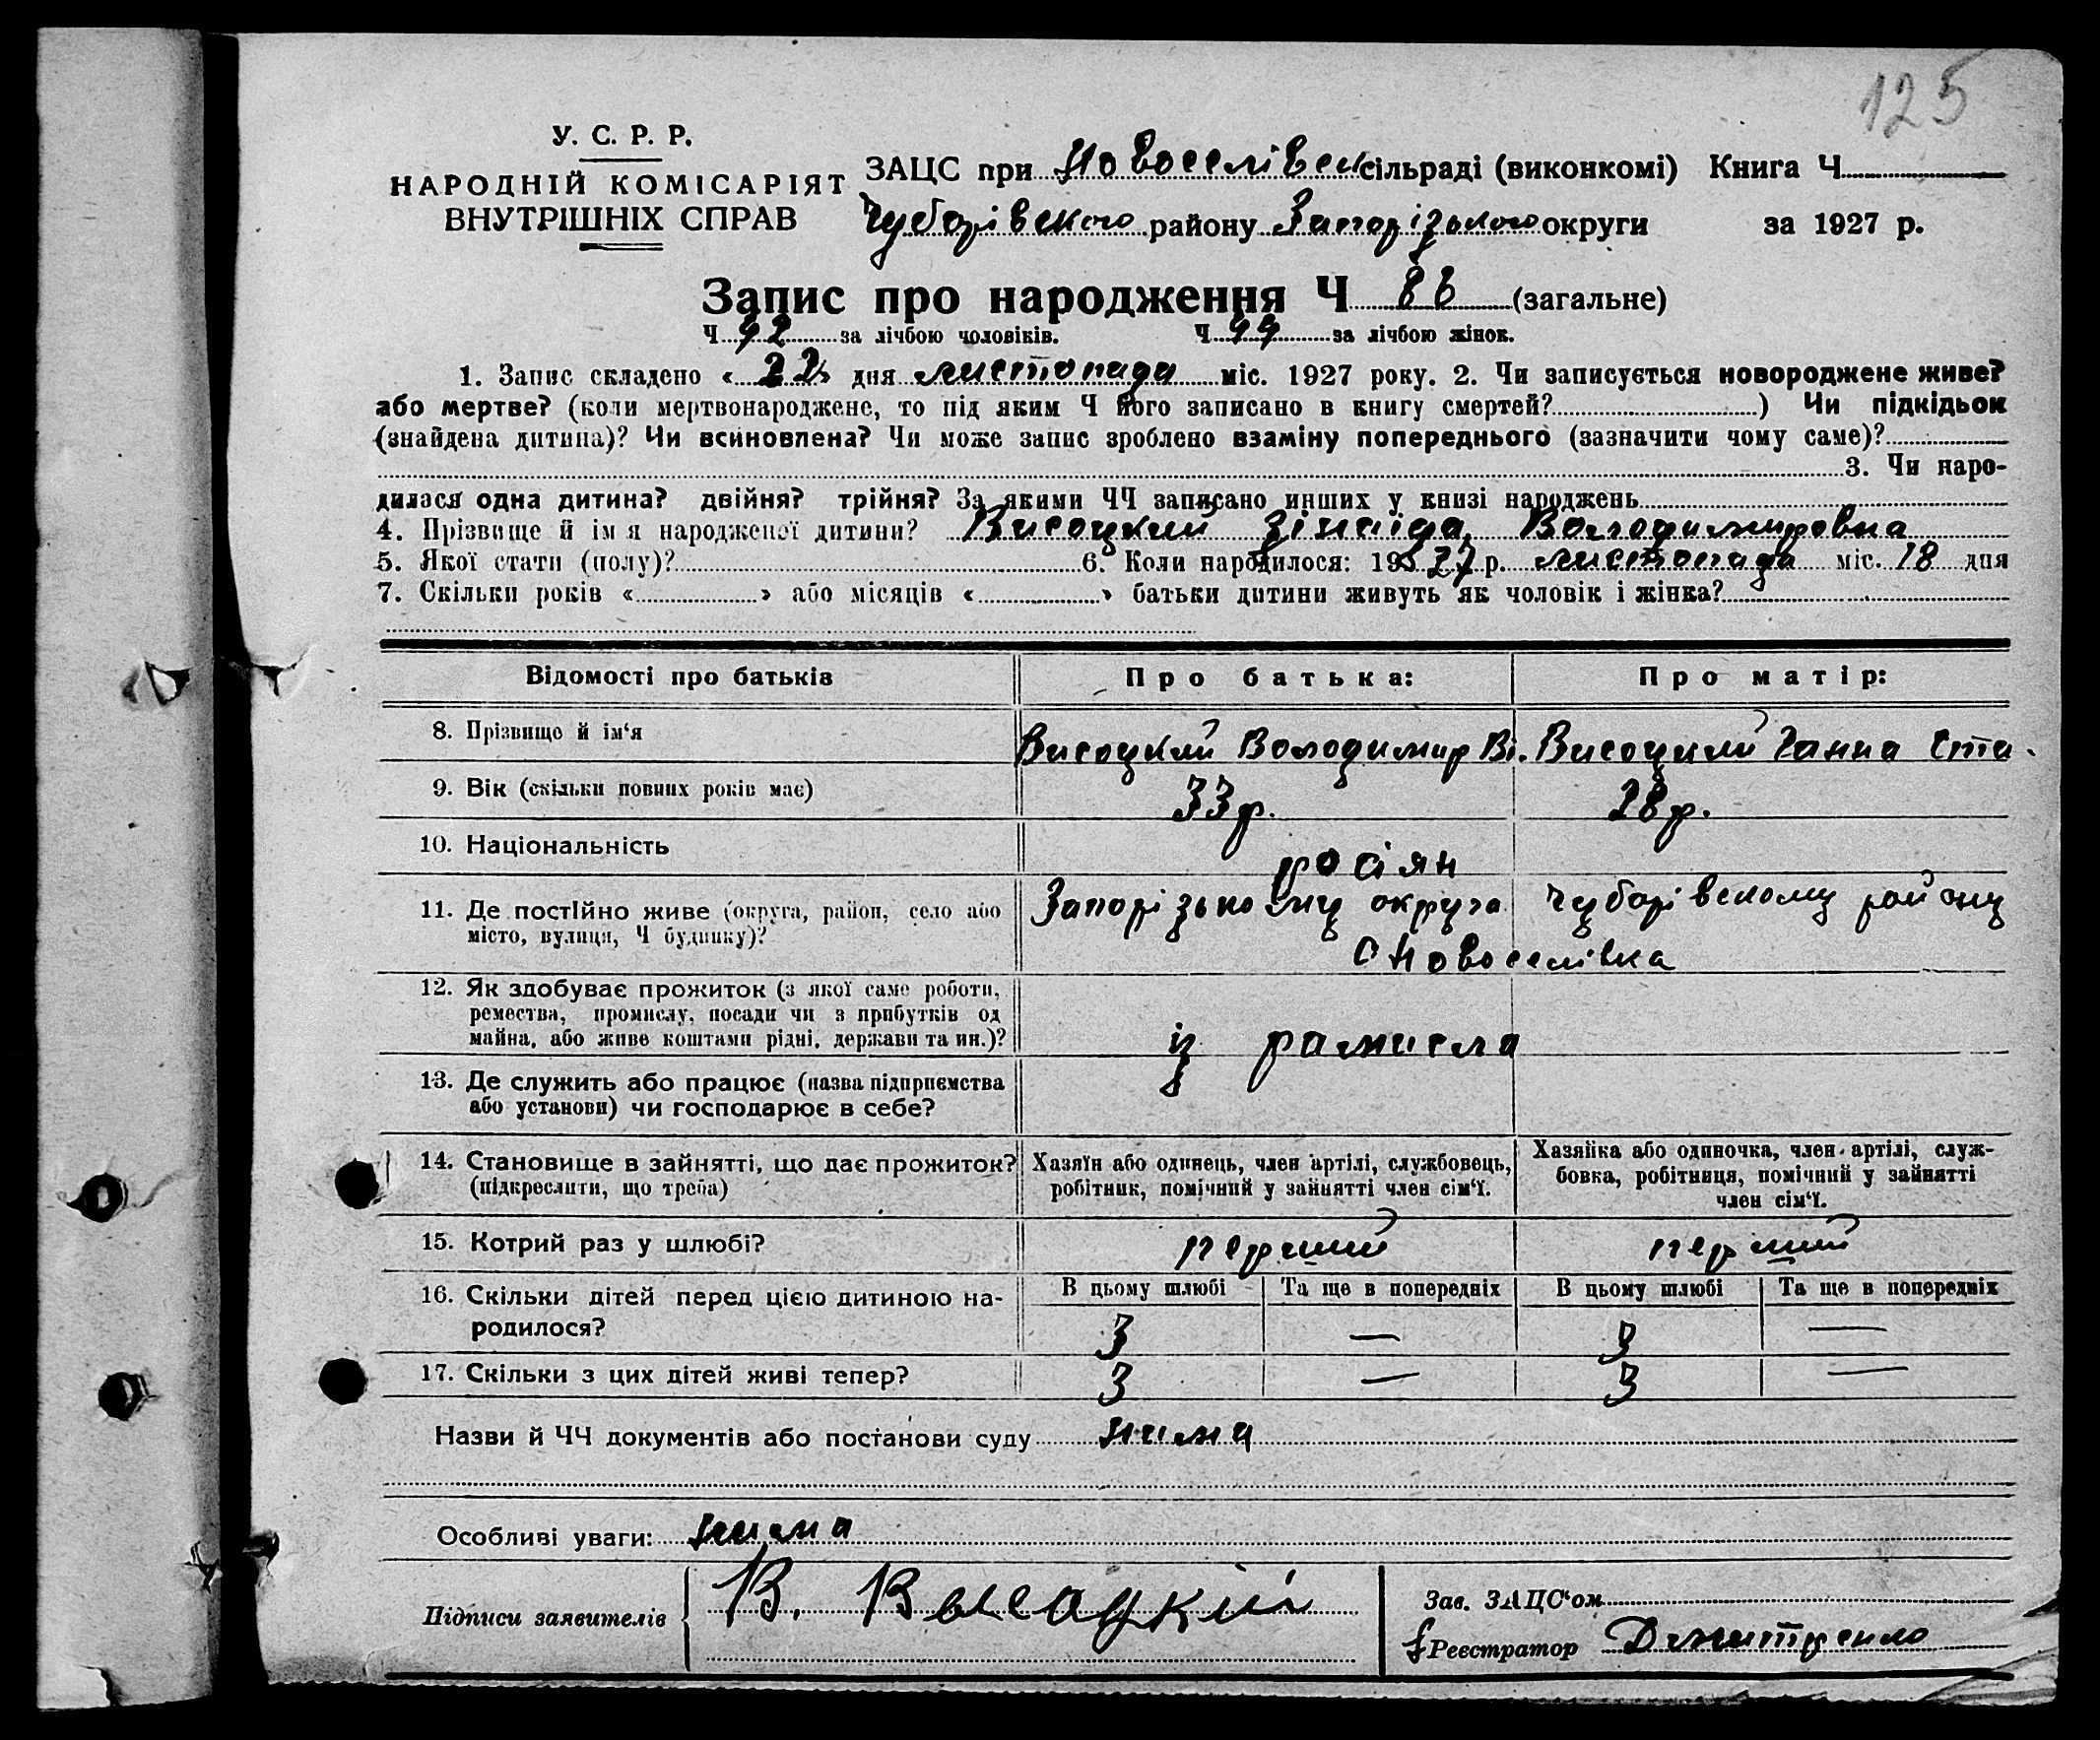 125
У. С. Р. Р.
НАРОДНІЙ КОМІСАРІЯТ
ВНУТРІШНІХ СПРАВ
ЗАЦС при Новоселівск сільраді (виконкомі) Книга Ч
Чубарівского району Запорізького округи за 1927 р.
Запис про народження Ч 86 (загальне)
Ч 42 за лічбою чоловіків. Ч 44 за лічбою жінок.
1. Запис складено « 22 » дня листопада міс. 1927 року. 2. Чи записується новороджене живе?
або мертве? (коли мертвонароджене, то під яким Ч його записано в книгу смертей? ) Чи підкідьок
(знайдена дитина)? Чи всиновлена? Чи може запис зроблено взаміну попереднього (зазначити чому саме)?
3. Чи наро-
дилася одна дитина? двійня? трійня? За якими ЧЧ записано инших у книзі народжень
4. Прізвище й ім я народженої дитини? Висоцкий Зінаїда Володимировна
5. Якої стати (полу)? 6. Коли народилося: 1927 р. листопада міс. 18 дня
7. Скільки років « » або місяців « » батьки дитини живуть як чоловік і жінка?
Відомості про батьків Про батька: Про матір:
8. Прізвище й ім‘я Висоцкий Володимир Ві. Висоцкий Ганна Ста.
9. Вік (скільки повних років має) 33 р. 28 р.
10. Національність росіян
11. Де постійно живе (округа, район, село або місто, вулиця, Ч будинку)? Запорізькому округа Чубарівскому району
с Новоселівка
12. Як здобуває прожиток (з якої саме роботи,
ремества, промислу, посади чи з прибутків од
майна, або живе коштами рідні, держави та ин.)? із рамисла
13. Де служить або працює (назва підприємства
або установи) чи господарює в себе?
14. Становище в зайнятті, що дає прожиток?
(підкреслити, що треба)
Хазяїн або одинець, член артілі, службовець,
робітник, помічний у зайнятті член сім‘ї.
Хазяйка або одиночка, член артілі, служ-
бовка, робітниця, помічний у зайнятті
член сім‘ї.
15. Котрий раз у шлюбі? перший перший
16. Скільки дітей перед цією дитиною на-
родилося?
В цьому шлюбі Та ще в попередніх В цьому шлюбі Та ще в попередніх
3 — 3 —
17. Скільки з цих дітей живі тепер? 3 — 3 —
Назви й ЧЧ документів або постанови суду нима
Особливі уваги: нима
Підписи заявителів В. Высацкий
Зав. ЗАЦС‘ом
Реєстратор Дмитренко